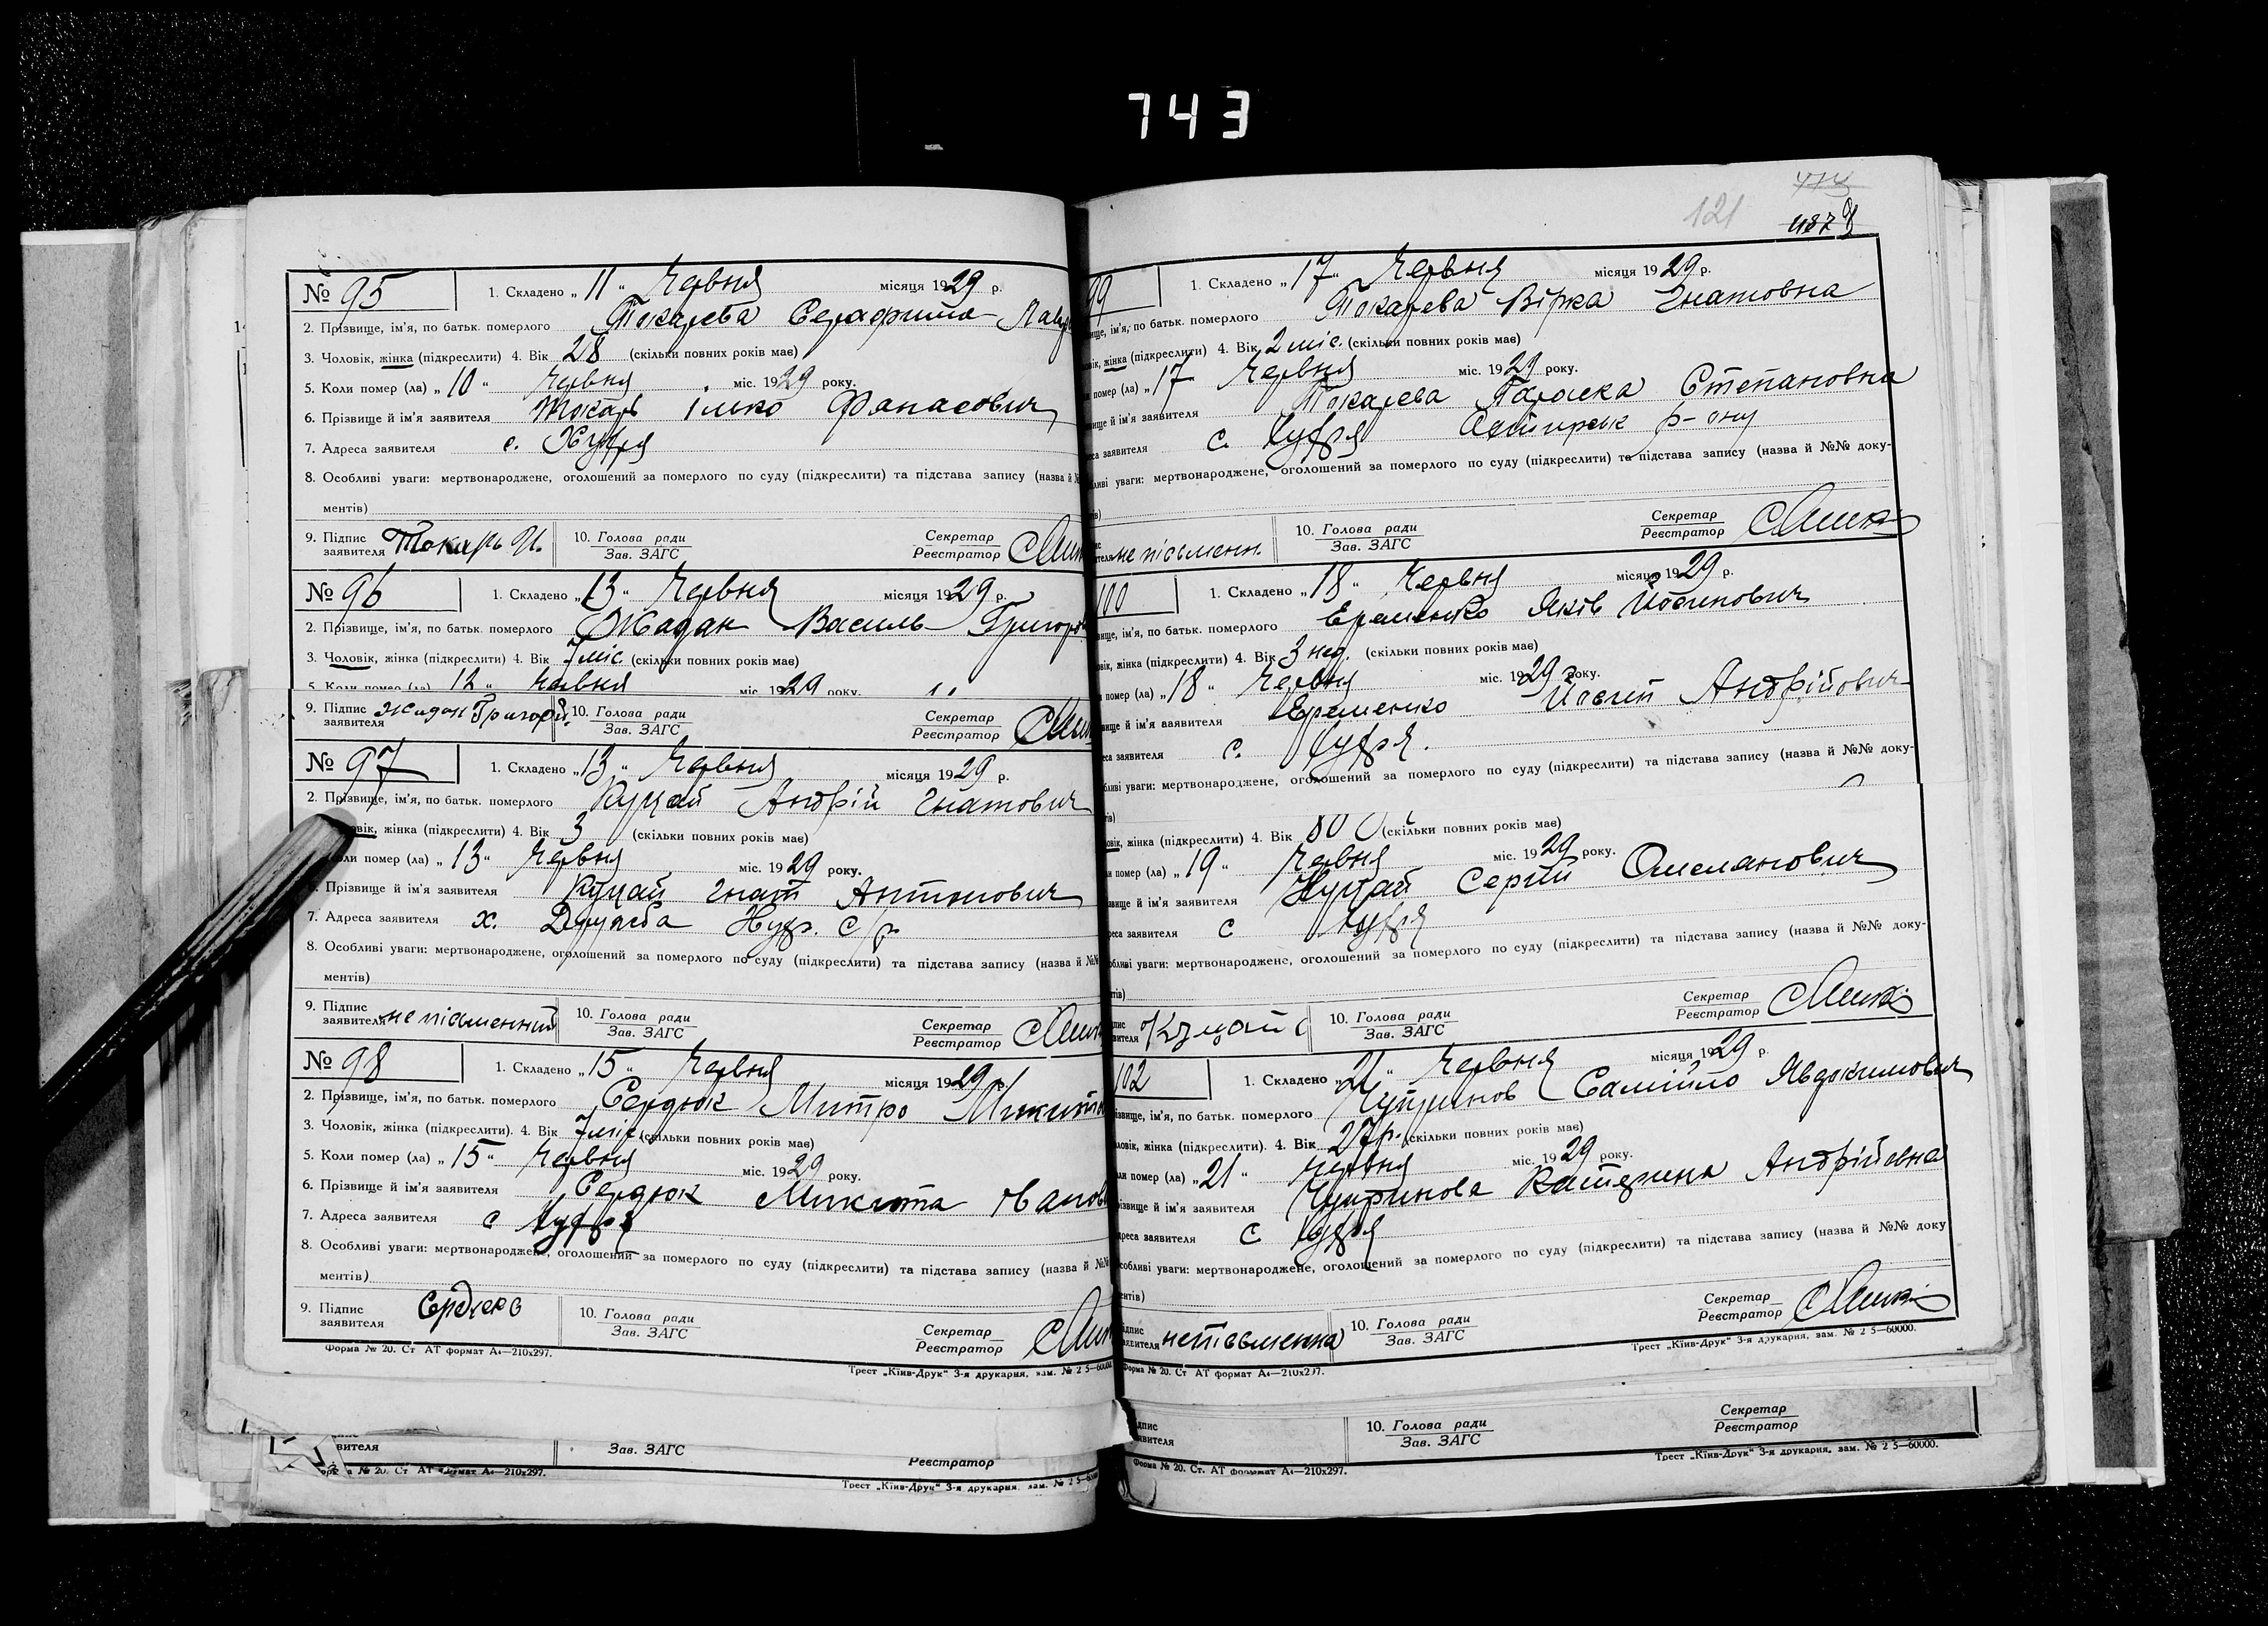 743
№ 95 1. Складено „ 11 " Червня місяця 1929 р.
2. Прізвище, ім'я, по батьк. померлого Токарева Серафима
3. Чоловік, жінка (підкреслити) 4. Вік 28 (скільки повних років має)
5. Коли помер (ла) „ 10 " Червня міс. 1929 року.
6. Прізвище й ім'я заявителя Токарь Ілько Фанасович
7. Адреса заявителя с.
8. Особливі уваги: мертвонароджене, оголошений за померлого по суду (підкреслити) та підстава запису (назва й
ментів)
9. Підпис заявителя Токарь И. 10. Голова ради Зав. ЗАГС Секретар Реєстратор
№ 96 1. Складено „ 13 " Червня місяця 1929 р.
2. Прізвище, ім'я, по батьк. померлого Жадан Василь
3. Чоловік, жінка (підкреслити) 4. Вік 7 міс. (скільки повних років має)
5. Коли помер (ла) 12 " Червня міс. 1929 року.
9. Підпис заявителя Жадан Григорій. 10. Голова ради Зав. ЗАГС Секретар Реєстратор
№ 97 1. Складено „ 13 " Червня місяця 1929 р.
2. Прізвище, ім'я, по батьк. померлого Куцай Андрій Гнатович
жінка (підкреслити) 4. Вік 3 (скільки повних років має)
помер (ла) „ 13 " Червня міс. 1929 року.
Прізвище й ім'я заявителя Куцай Гнат Антонович
7. Адреса заявителя х. Дружба с/р
8. Особливі уваги: мертвонароджене, оголошений за померлого по суду (підкреслити) та підстава запису (назва й №№
ментів)
9. Підпис заявителя не письменний 10. Голова ради Зав. ЗАГС Секретар Реєстратор
№ 98 1. Складено „ 15 " Червня місяця 1929 р.
2. Прізвище, ім'я, по батьк. померлого Сердюк Митро
3. Чоловік, жінка (підкреслити). 4. Вік 7 міс. (скільки повних років має)
5. Коли помер (ла) „ 15 " Червня міс. 1929 року.
6. Прізвище й ім'я заявителя Сердюк Микита
7. Адреса заявителя с
8. Особливі уваги: мертвонароджене, оголошений за померлого по суду (підкреслити) та підстава запису (назва й №№
ментів)
9. Підпис заявителя 10. Голова ради Зав. ЗАГС Секретар Реєстратор
Форма № 20. Ст АТ формат А4—210x297.
Трест „Київ-Друк" 3-я друкарня, зам. № 2 5—60000
Зав. ЗАГС
Реєстратор
121
99 1. Складено „ 17 " Червня місяця 1929 р.
ім'я, по батьк. померлого Токарева Вірка Гнатовна
жінка (підкреслити) 4. Вік 2 міс. (скільки повних років має)
помер (ла) „ 17 Червня міс. 1929 року.
й ім'я заявителя Токарева Параска Степановна
заявителя с. р-ону
уваги: мертвонароджене, оголошений за померлого по суду (підкреслити) та підстава запису (назва й №№ доку-
не письменн. 10. Голова ради Зав. ЗАГС Секретар Реєстратор
100 1. Складено „ 18 " Червня місяця 1929 р.
ім'я, по батьк. померлого Еременко Яків Йосипович
жінка (підкреслити) 4. Вік 3 нед. (скільки повних років має)
помер (ла) „ 18 " Червня міс. 1929 року.
й ім'я заявителя Еременко Йосип Андрійович
заявителя с.
уваги: мертвонароджене, оголошений за померлого по суду (підкреслити) та підстава запису (назва й №№ доку-
жінка (підкреслити) 4. Вік 80 (скільки повних років має)
помер (ла) „ 19 " Червня міс. 1929 року.
й ім'я заявителя Куцай Сергій Омелянович
заявителя с
уваги: мертвонароджене, оголошений за померлого по суду (підкреслити) та підстава запису (назва й №№ доку-
Куцай С 10. Голова ради Зав. ЗАГС Секретар Реєстратор
102 1. Складено „ 21 " Червня місяця 1929 р.
ім'я, по батьк. померлого Чупринов Самійло Явдокимович
жінка (підкреслити). 4. Вік 27 р. (скільки повних років має)
помер (ла) „ 21 " Червня міс. 1929 року.
й ім'я заявителя Чупринова Катерина Андрійовна
заявителя с
уваги: мертвонароджене, оголошений за померлого по суду (підкреслити) та підстава запису (назва й №№ доку
неписьменна 10. Голова ради Зав. ЗАГС Секретар Реєстратор
Форма № 20. Ст АТ формат А4—210x297.
Трест „Київ-Друк" 3-я друкарня, зам. № 2 5—60000.
10. Голова ради Зав. ЗАГС Секретар Реєстратор
Форма № 20. Ст. АТ формат А4—210x297.
Трест „Київ-Друк" 3-я друкарня, зам. № 2 5—60000.